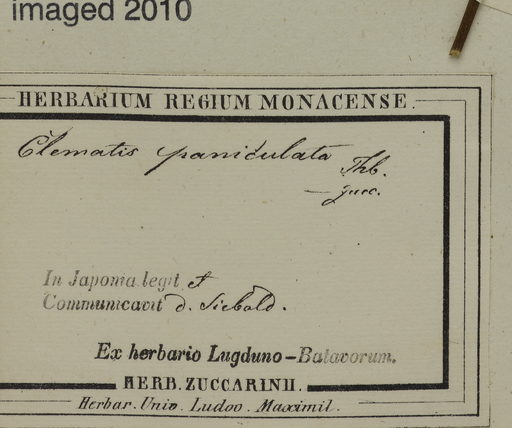 imaged 2010
HERBARIUM REGIUM MONACENSE.
Clematis paniculata Thb.
— Zucc.
In Japonia legit et
Communicavit d. Siebold.
Ex herbario Lugduno-Batavorum.
HERB. ZUCCARINII.
Herbar. Univ. Ludov. Maximil.